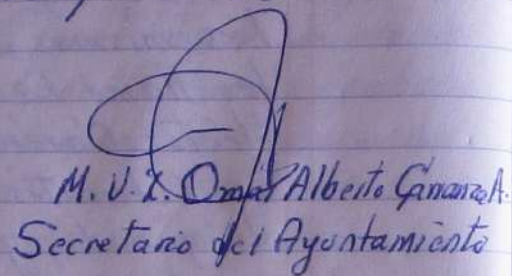 M. V. Z. Omar Alberto A.
Secretario del Ayuntamiento